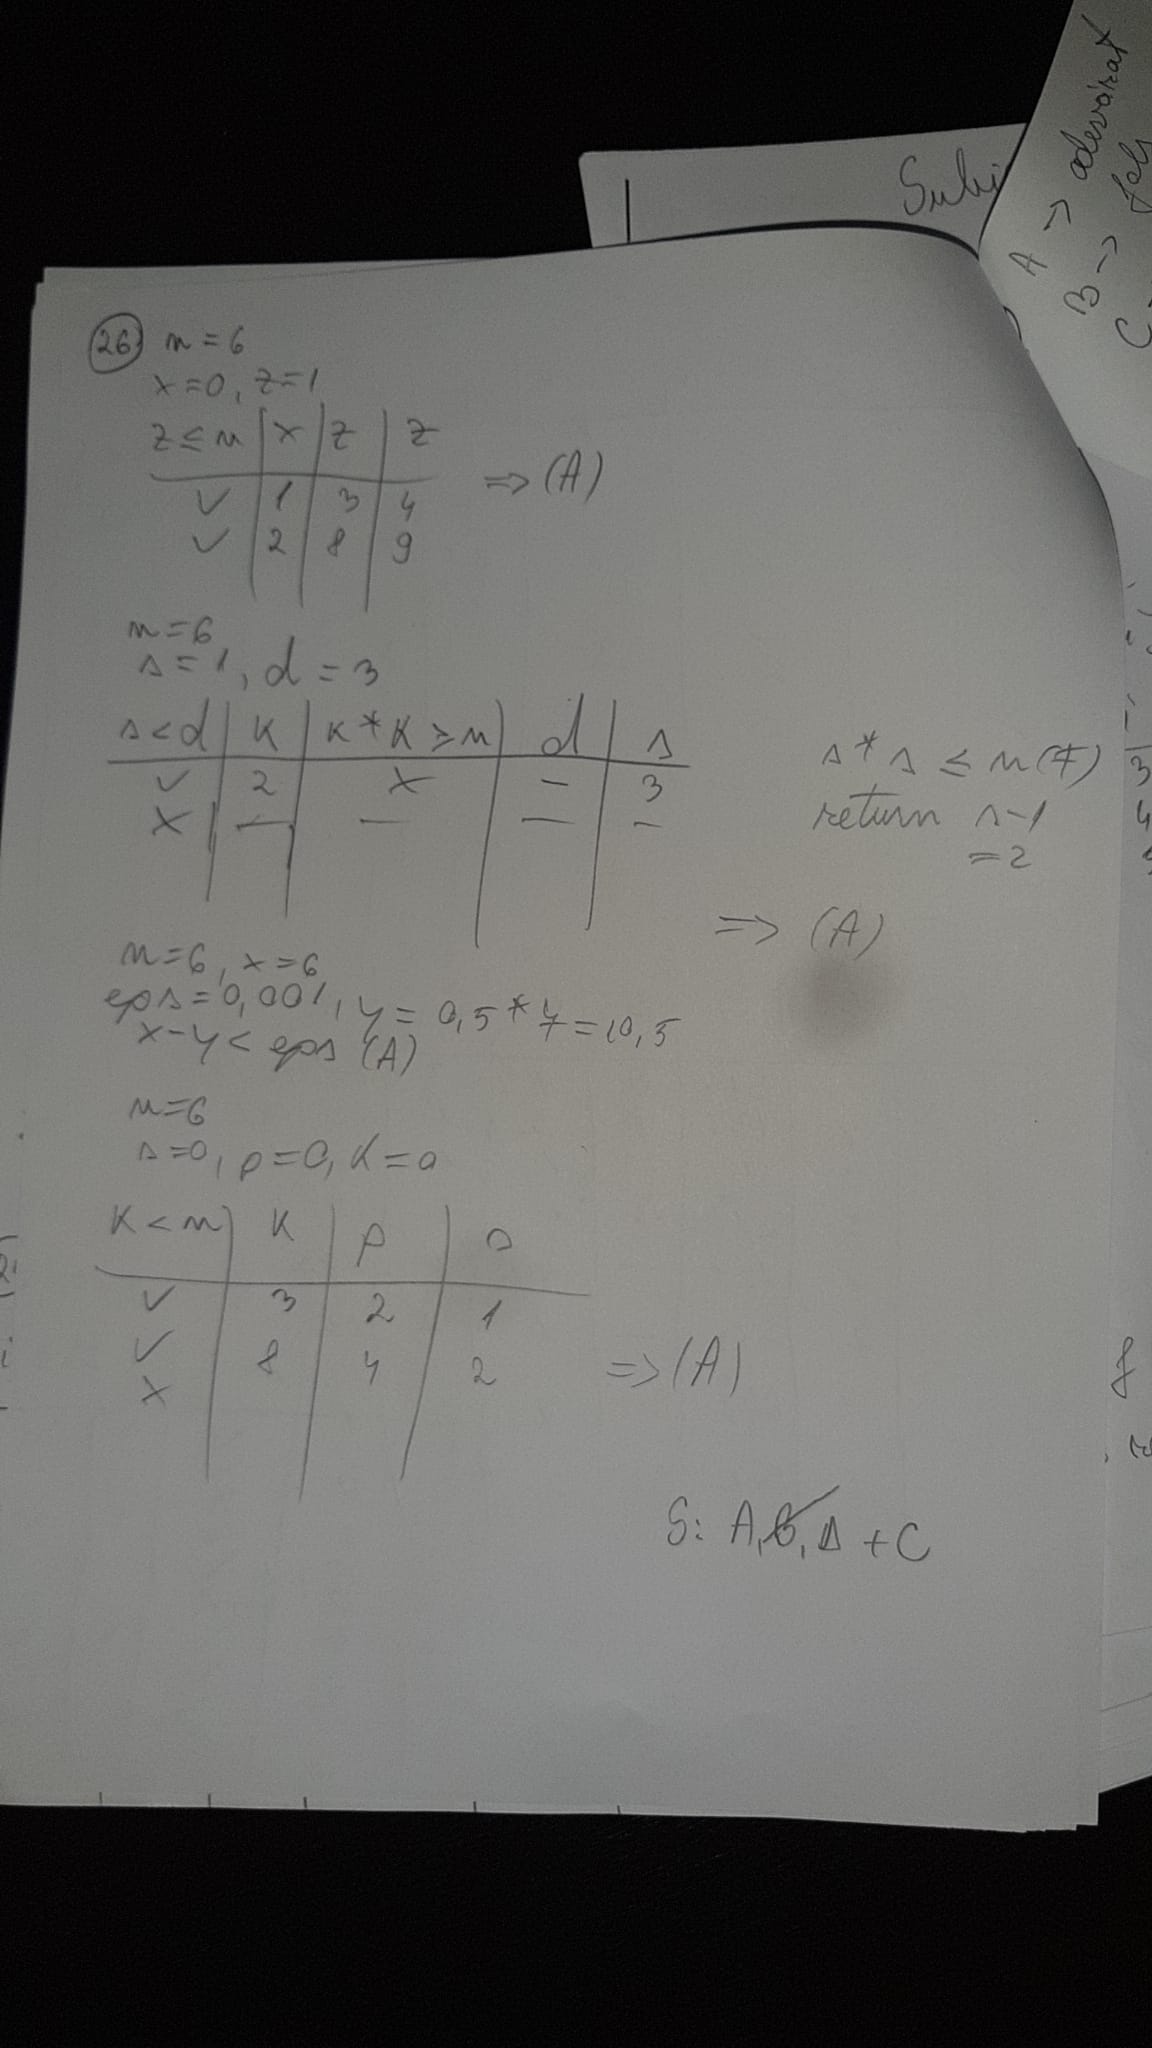 Subi
A → adevărat
B →
C
26 n=6
x=0, z=1
z≤n | x | z | z
✓ | 1 | 3 | 4
✓ | 2 | 8 | 9
⇒ (A)
n=6
s=1, d=3
s<d | k | k*k>n | d | s
✓ | 2 | x | – | 3
x | – | – | – | –
s*s ≤ n (F)
return s-1
=2
⇒ (A)
n=6, x=6
eps=0,001, y = 0,5*7=10,5
x-y< eps (A)
n=6
s=0, p=0, k=0
k<n | k | p | s
✓ | 3 | 2 | 1
✓ | 8 | 4 | 2
x
⇒ (A)
S: A, B, D + C